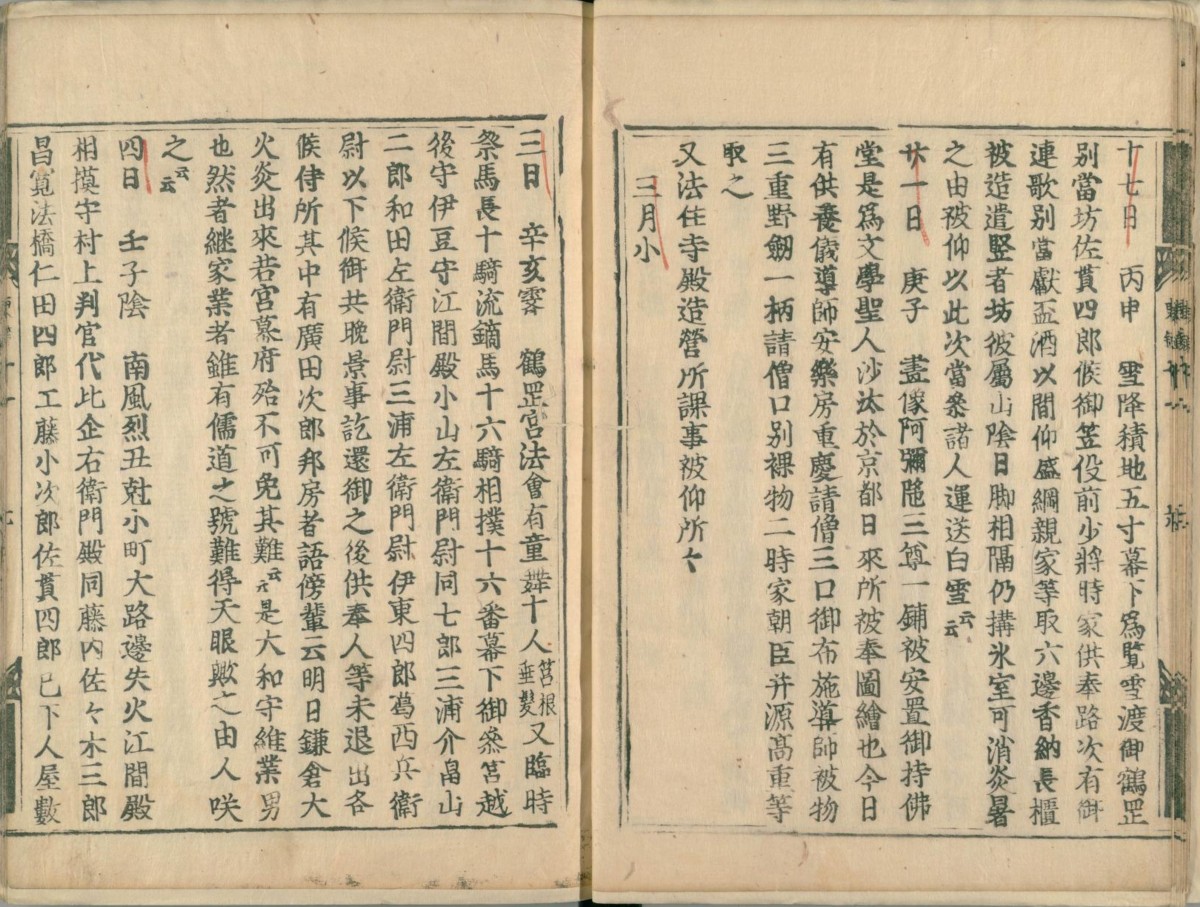 十七日　丙申　雪降積地五寸幕下爲覧雪渡御鶴罡
別當坊佐貫四郎候御笠役前少將時家供奉路次有御
連歌別當獻盃酒以間仰盛綱親家等取六邊香納長櫃
被造遣竪者坊彼屬山陰日脚相隔仍搆氷室可消炎暑
之由被仰以此次當參諸人運送白雪云云
廿一日　庚子　畫像阿彌陁三尊一鋪被安置御持佛
堂是爲文學聖人沙汰於京都日來所被奉圖繪也今日
有供養儀導師安樂房重慶請僧三口御布施導師被物
三重野劔一柄請僧口別裸物二時家朝臣并源髙重等
取之
又法住寺殿造營所課事被仰所々
三月小
三日　辛亥霽　鶴罡宮法會有童舞十人筥根垂髪又臨時
祭馬長十騎流鏑馬十六騎相撲十六番幕下御參筥越
後守伊豆守江間殿小山左衛門尉同七郎三浦介畠山
二郎和田左衛門尉三浦左衛門尉伊東四郎葛西兵衛
尉以下候御共晩景事訖還御之後供奉人等未退出各
候侍所其中有廣田次郎邦房者語傍輩云明日鎌倉大
火炎出來若宮幕府殆不可免其難云云是大和守維業男
也然者継家業者雖有儒道之號難得天眼歟之由人咲
之云云
四日　壬子陰　南風烈丑尅小町大路邊失火江間殿
相摸守村上判官代比企右衛門殿同藤内佐々木三郎
昌寛法橋仁田四郎工藤小次郎佐貫四郎已下人屋數